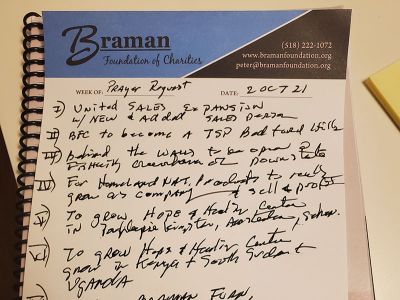 Braman
Foundation of Charities
(518) 222-1072
www.bramanfoundation.org
peter@bramanfoundation.org
WEEK OF: Prayer Request DATE: 2 OCT 21
I) UNITED SALES EXPANSION
w/ NEW & Added SALES person
II) BFC to become A TSP
III) Behind the WALLS to be open
IV) For Homeland NAT. Products to really
grow as company & sell & profit
V) TO grow HOPE & Healing Center
IN
VI) TO GROW Hope & Healing Center
grow in Kenya & South Sudan &
UGANDA
BRAMAN